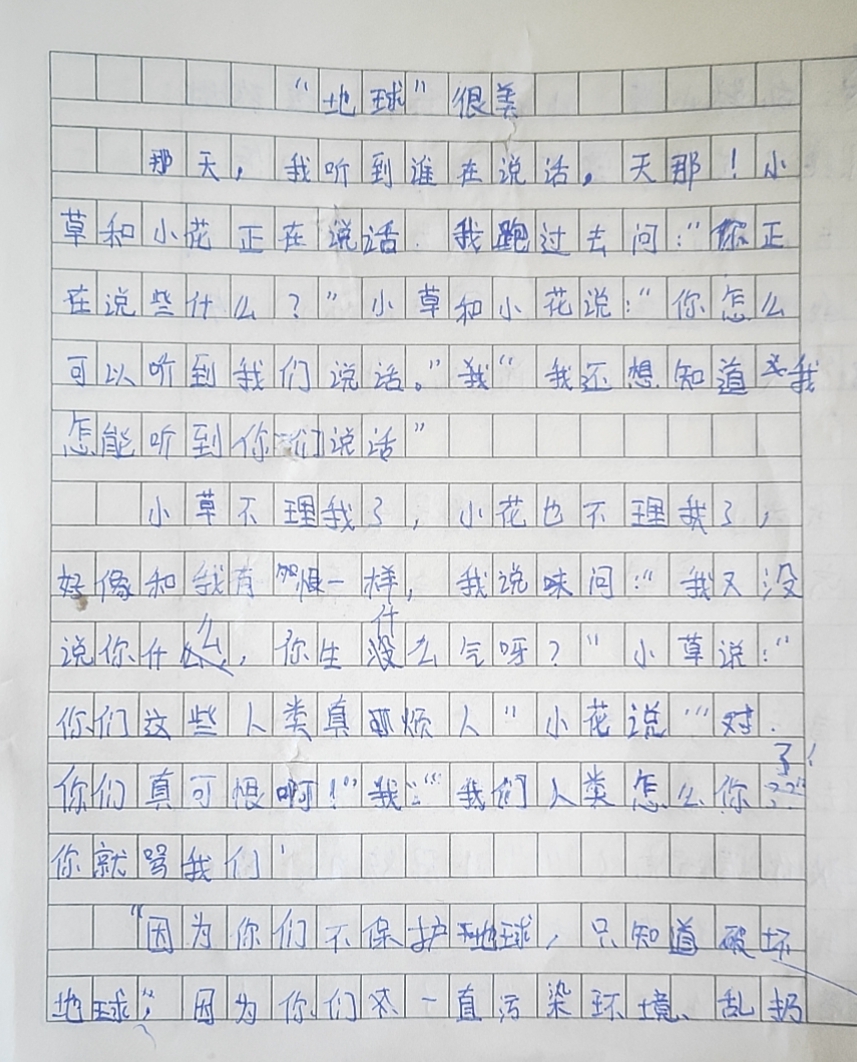 “地球”很美
那天，我听到谁在说话。天那！小
草和小花正在说话．我跑过去问：“你正
在说些什么？”小草和小花说：“你怎么
可以听到我们说话。”我“我还想知道我
怎能听到你们说话”
小草不理我了，小花也不理我了，
好像和我有恨一样，我说问：“我又没
说你什么，你生什么气呀？“小草说：“
你们这些人类真烦人“小花说“对．
你们真可恨啊！”我：“我们人类怎么你了！
你就骂我们
“因为你们不保护地球，只知道破坏
地球，因为你们一直污染环境、乱扔